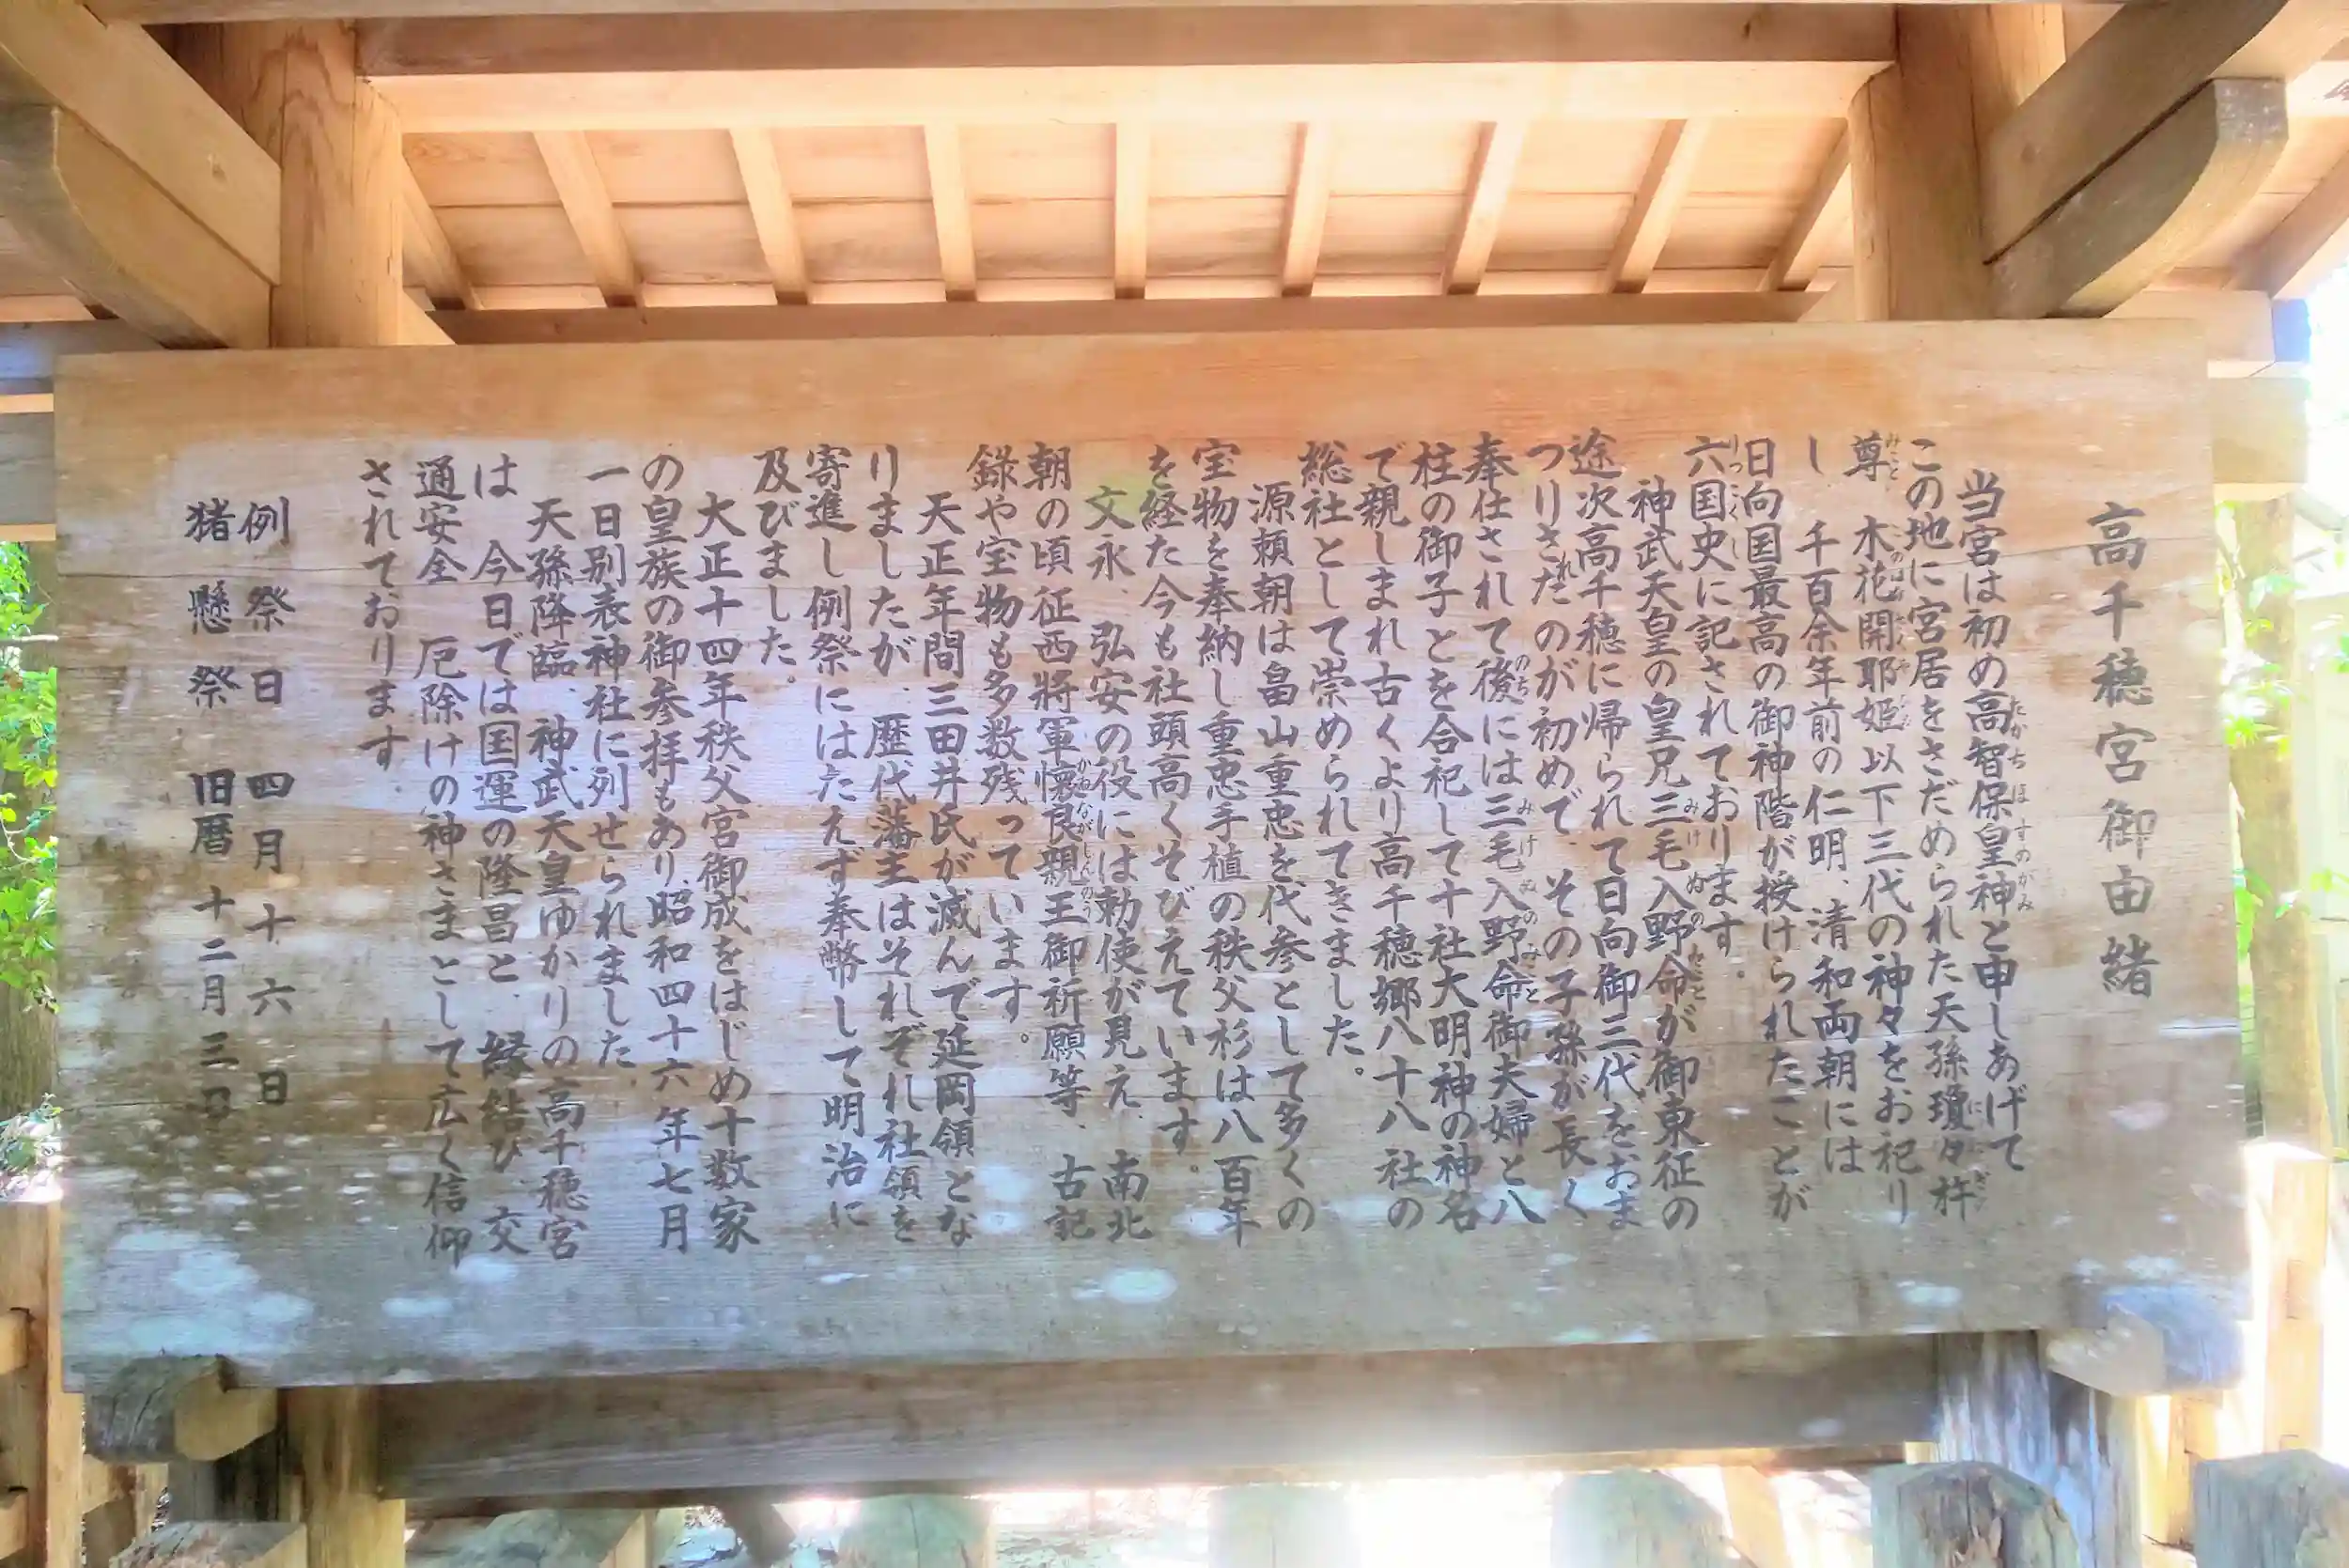 高千穂宮御由緒
当宮は初め高智保皇神と申しあげて
この地に宮居をさだめられた天孫瓊々杵
尊 木花開耶姫以下三代の神々をお祀り
し 千百余年前の仁明、清和両朝には
日向国最高の御神階が授けられたことが
六国史に記されております。
神武天皇の皇兄三毛入野命が御東征の
途次高千穂に帰られて日向御三代をおま
つりされたのが初めで、その子孫が長く
奉仕されて後には三毛入野命御夫婦と八
柱の御子とを合祀して十社大明神の神名
で親しまれ古くより高千穂郷八十八社の
総社として崇められてきました。
源頼朝は畠山重忠を代参として多くの
宝物を奉納し重忠手植の秩父杉は八百年
を経た今も社頭高くそびえています。
文永、弘安の役には勅使が見え、南北
朝の頃征西将軍懐良親王御祈願等、古記
録や宝物も多数残っています。
天正年間三田井氏が滅んで延岡領とな
りましたが、歴代藩主はそれぞれ社領を
寄進し例祭にはたえず奉幣して明治に
及びました。
大正十四年秩父宮御成をはじめ十数家
の皇族の御参拝もあり、昭和四十六年七月
一日別表神社に列せられました
天孫降臨、神武天皇ゆかりの高千穂宮
は 今日では国運の隆昌と、縁結び 交
通安全 厄除けの神さまとして広く信仰
されております.
例祭日 四月十六日
猪懸祭 旧暦十二月三日